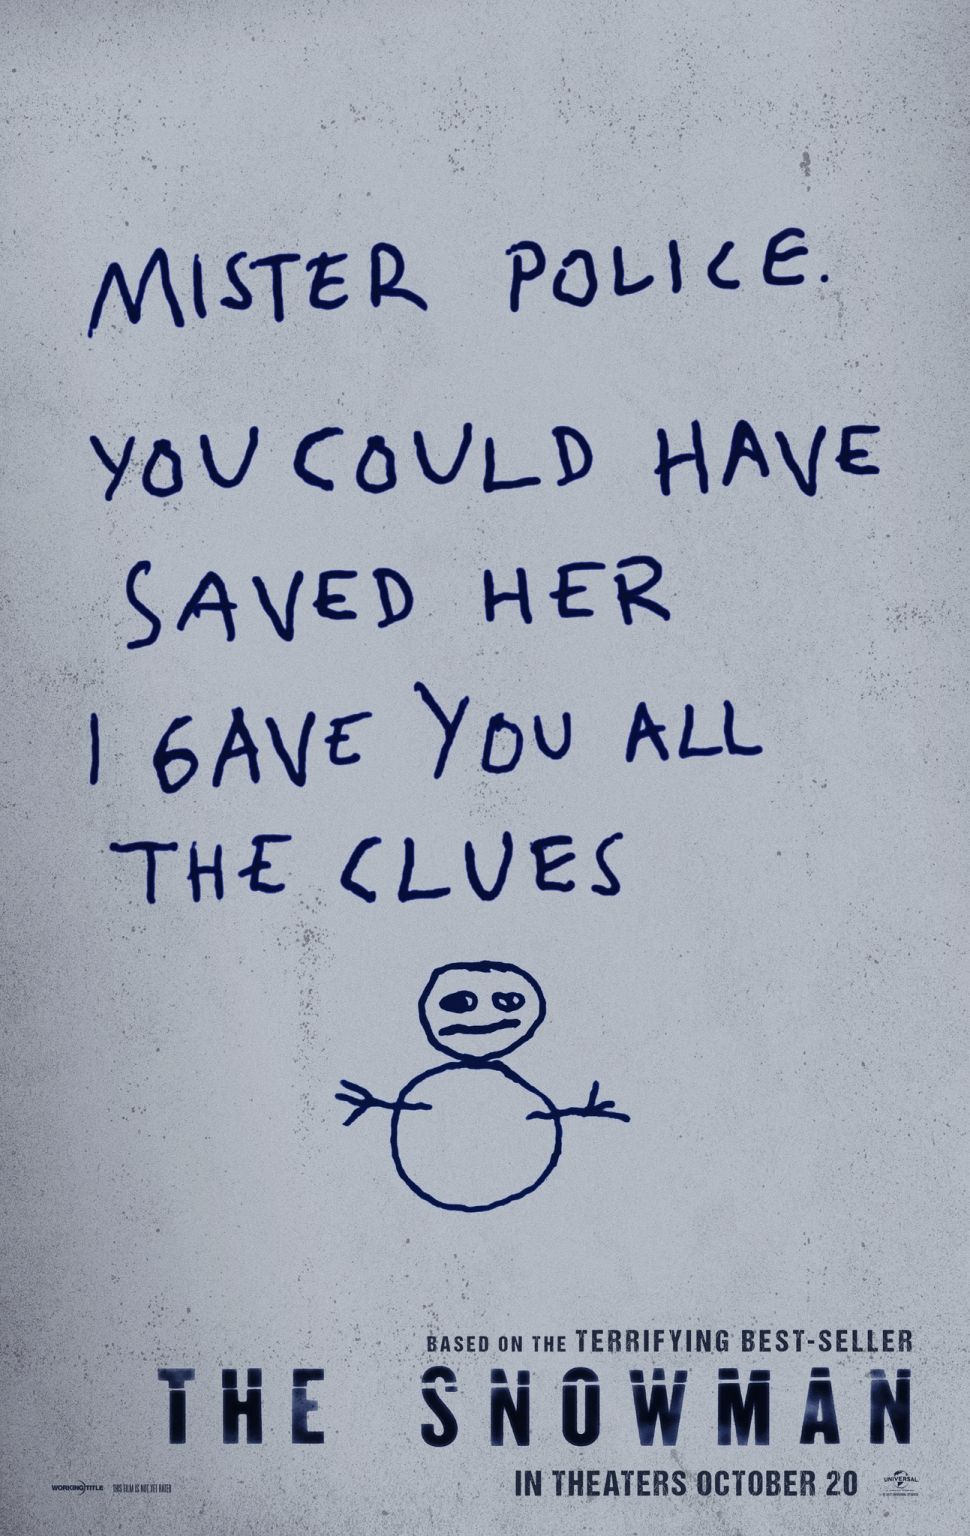 MISTER POLICE.
YOU COULD HAVE
SAVED HER
I GAVE YOU ALL
THE CLUES
BASED ON THE TERRIFYING BEST-SELLER
THE SNOWMAN
IN THEATERS OCTOBER 20
WORKING TITLE
THIS FILM IS NOT YET RATED
UNIVERSAL